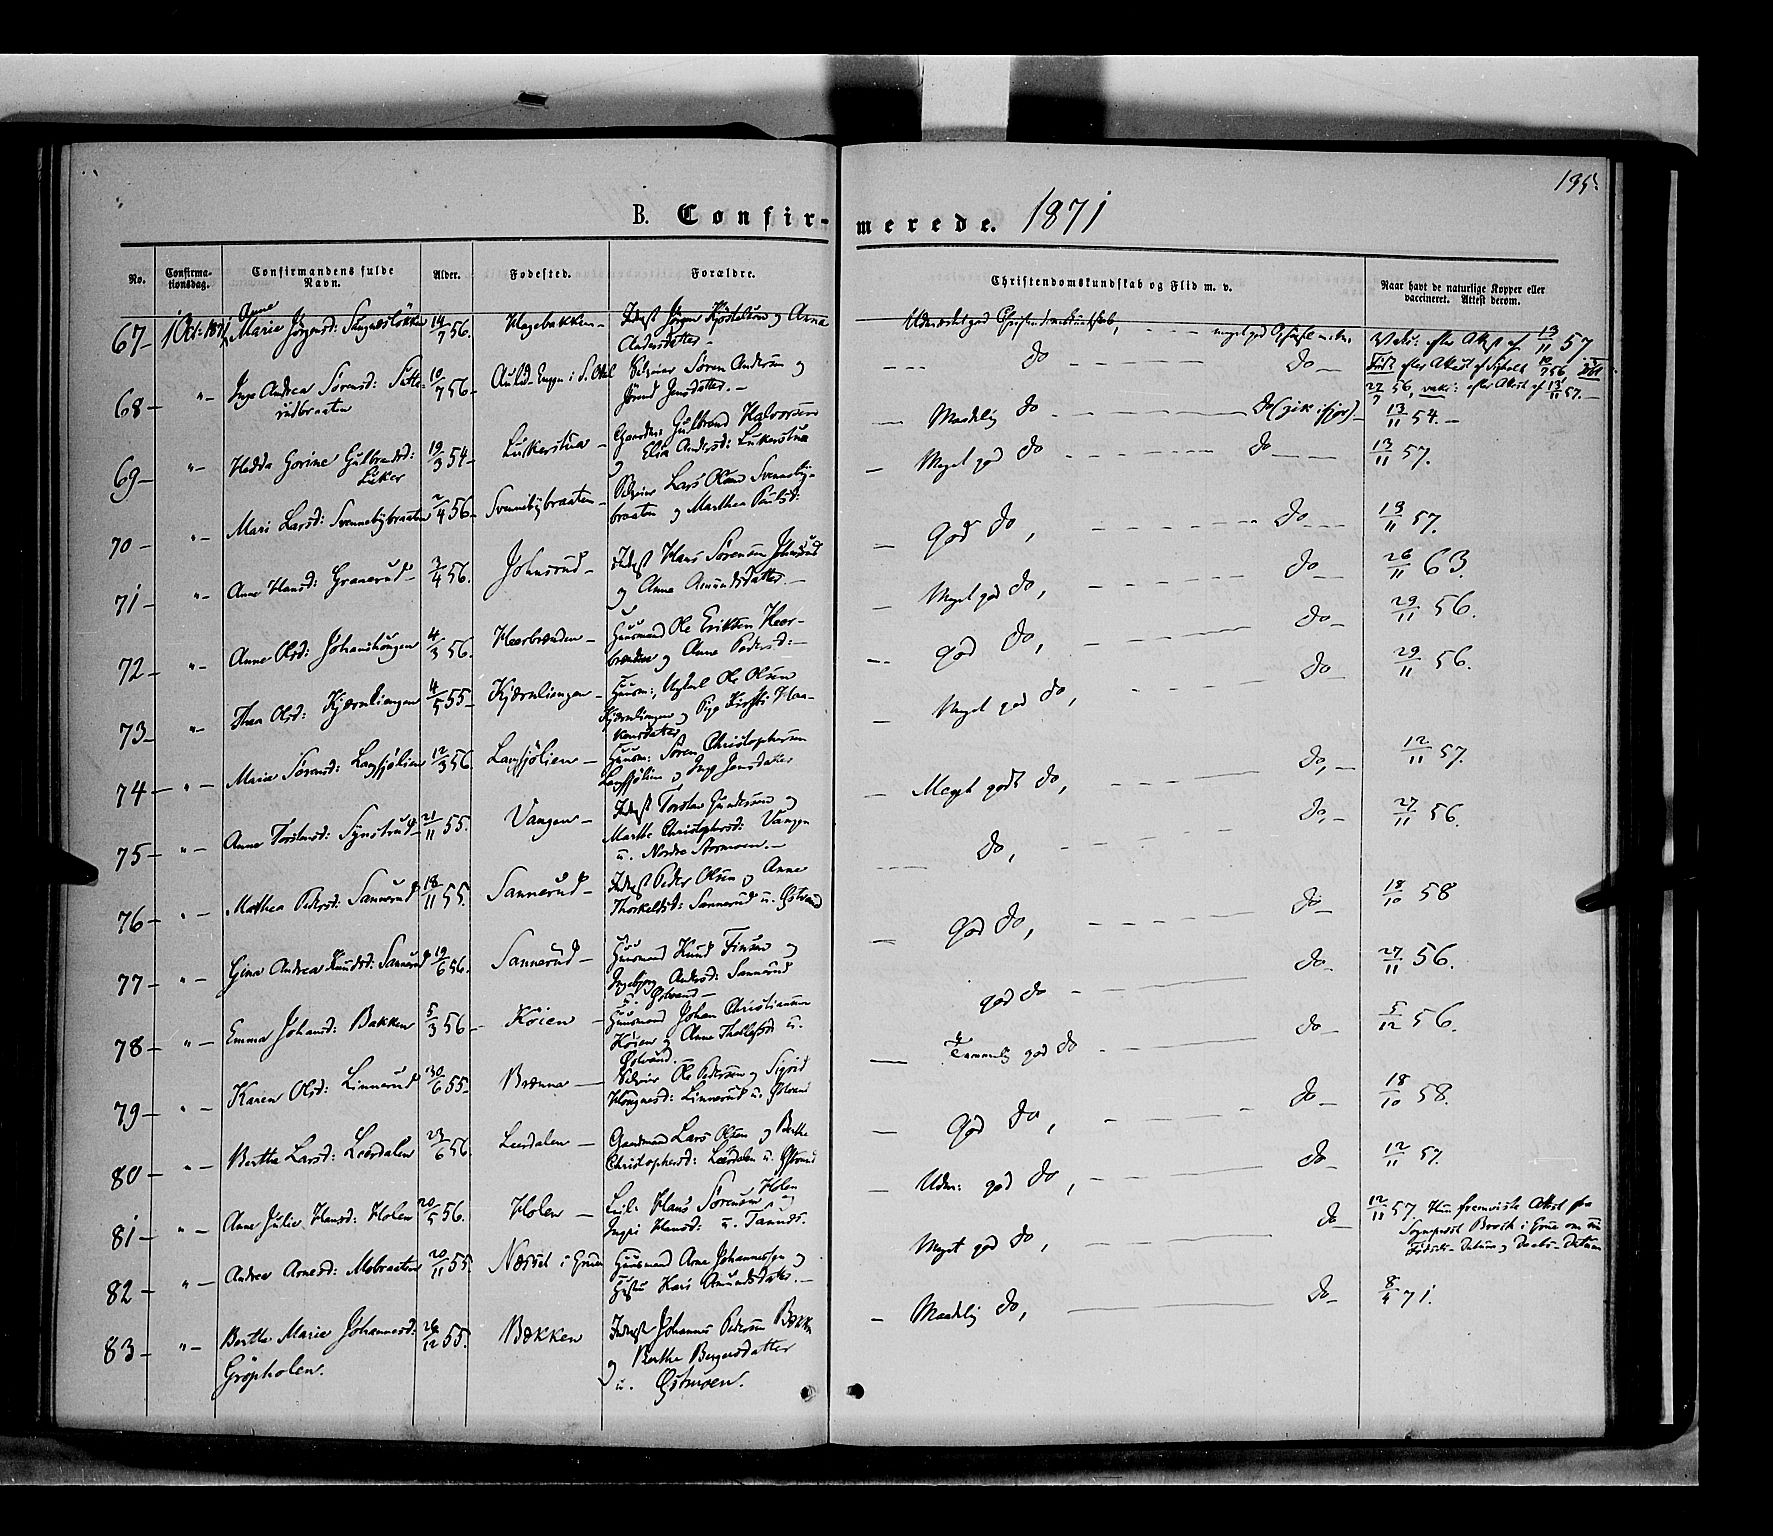 135.
B. Confir-merede. 1871
No. Confirma-tionsdag. Confirmandens fulde Navn. Alder. Fødested. Forældre. Christendomskundskab og Flid m. v. Naar havt de naturlige Kopper eller vaccineret. Attest derom.
67 1 Oct: 1871 Anne Marie 14/7 56. Hagebakken Inderst Jørgen og Anna Andersdatter Christendomskundskab, meget god Vacc: efter Attest af 13/11 57
68 "- Inge Andrea Sørensd: 10/7 56 Selveier Søren Andersen og Jensdatter. Do Do efter Attest af 13/11 57.
69 "- Hedda Gorine Gulbrandsd: Luker 19/3 54 Lukerstua Gulbrand Halvorsen og Elia Andersd: Lukerstua Maadelig Do Do 13/11 54.
70 "- Mari Larsd: Svennebybraaten 2/4 56 Svennebybraaten Selveier Lars Olsen Svennebybraaten og Marthea Paulsd: Meget god Do Do 13/11 57.
71 "- Anne Hansd: Granerud 3/4 56. Johnsrud Inderst Hans Sørensen Johnsrud og Anna Amundsdatter. God Do, Do 13/11 57.
72 "- Anne Olsd: Johanshaugen 4/3 56. Heerbrænden Huusmand Ole Eriksen Heerbrænden og Anne Pedersd: Meget god Do, Do 26/11 63.
73 "- Thea Olsd: Kjærnliengen 4/5 55 Kjærnliengen Huusm:, Ole Olsen Kjærnliengen og Pige Kirsti Haakensdatter god Do, Do 29/11 56.
74 "- Marie Sørensd: Langsjølien 12/3 56. Langsjølien Huusm: Søren Christophersen Langsjølien og Inge Jensdatter Meget god Do, Do 29/11 56.
75 "- Anne Torstensd: Synstrud 21/11 55. Vangen Inderst Torsten Gundersen og Marthe Christophersd: Vangen u. Nordre Aasmoen. Meget godt Do, Do, 12/11 57.
76 "- Mathea Pedersd: Sannerud 18/11 55. Sannerud Inderst Peder Olsen og Anne Thorkeldsd: Sannerud u. Østvand Do, Do, 27/11 56.
77 "- Gina Andrea Knudsd: Sannerud 19/6 56. Sannerud Huusmand Knud Finsen og Ingeborg Andersd: Sannerud u. Østvand God Do, Do 18/10 58
78 "- Emma Johansd: Bakken 5/3 56 Køien Huusmand Johan Christiansen Køien og Anne Thollefsd u. Østvand. god Do Do 27/11 56.
79 "- Karen Olsd: Linnerud 30/6 55 Brænna Selveier Ole Pedersen og Sigrid Haagensd: Linnerud u. Østvand Temmelig god Do Do 5/12 56.
80 "- Berthe Larsd: Leerdalen 23/6 56. Leerdalen Gaardmand Lars Olsen og Berthe Christophersd: Leerdalen u. Østvand God Do, Do 18/10 58.
81 "- Anne Julie Hansd: Holen 20/5 56. Holen Hans Sørensen Holen og Ingri Hansd: u. Udm: god Do, Do 12/11 57.
82 "- Andrea Arnesd: Mobraaten 20/11 55. i Grue Huusmand Arne Johannesen og Hustru Kari Amundsdatter. Meget god Do, Do 12/11 57, Hun fremviste Attest fra Sognepræst i Grue om sin Fødsels-Datum og Daabs-Datum
83 "- Berthe Marie Johannesd: Grøpholen. 26/12 55. Bækken Inderst Johannes Pedersen Bækken og Berthe Bergersdatter u. Østmoen. Maadelig Do, Do 8/4 71.